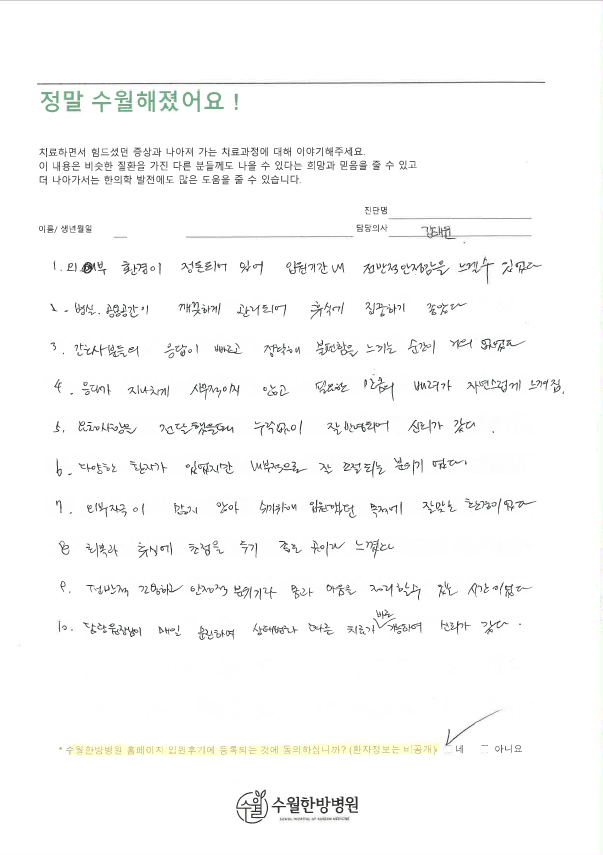 정말 수월해졌어요 !
치료하면서 힘드셨던 증상과 나아져 가는 치료과정에 대해 이야기해주세요.
이 내용은 비슷한 질환을 가진 다른 분들께도 나을 수 있다는 희망과 믿음을 줄 수 있고
더 나아가서는 한의학 발전에도 많은 도움을 줄 수 있습니다.
진단명
이름/ 생년월일 담당의사 김태윤
1. 외 내부 환경이 정돈되어 있어 입원기간 내 전반적 안정감을 느낄수 있었다
2. 병실. 공용공간이 깨끗하게 관리되어 휴식에 집중하기 좋았다
3. 간호사분들의 응답이 빠르고 정확해 불편함을 느끼는 순간이 거의 없었다
4. 응대가 지나치게 사무적이지 않고 필요한 만큼의 배려가 자연스럽게 느껴짐.
5. 요청사항을 전달했을때 누락없이 잘 반영되어 신뢰가 갔다.
6. 다양한 환자가 있었지만 내부적으로 잘 조절되는 분위기 였다.
7. 외부자극이 많지 않아 쉬기위해 입원했던 목적에 잘맞는 환경이었다
8 회복과 휴식에 초점을 두기 좋은 곳이라 느꼈다
9. 전반적 조용하고 안정적 분위기라 몸과 마음을 정리할수 있는 시간이었다
10. 담당원장님이 매일 회진하여 상태변화 따른 치료가 바로 적용하여 신뢰가 갔다.
* 수월한방병원 홈페이지 입원후기에 등록되는 것에 동의하십니까? (환자정보는 비공개) 네 아니요
수월 수월한방병원
SUWOL HOSPITAL OF KOREAN MEDICINE